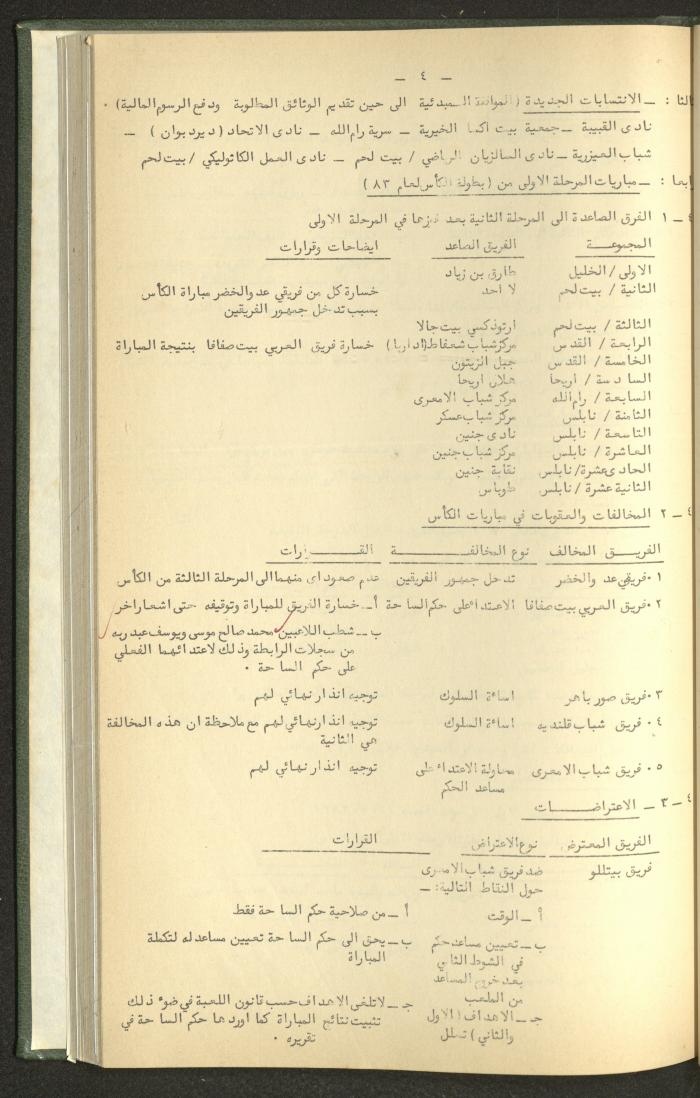 — ٤ —
ثالثا : — الانتسابات الجديدة (الموافقة المبدئية الى حين تقديم الوثائق المطلوبة ودفع الرسوم المالية) .
نادى القبيبة — جمعية بيت اكسا الخيرية — سرية رام الله — نادى الاتحاد (ديردبوان) —
شباب العيزرية — نادى السالزيان الرياضي / بيت لحم — نادى العمل الكاثوليكي / بيت لحم
رابعا : — مباريات المرحلة الاولى من (بطولة الكأس لعام ٨٣)
٤ — ١ الفرق الصاعدة الى المرحلة الثانية بعد فوزها في المرحلة الاولى
المجموعــة الفريق الصاعد ايضاحات وقرارات
الاولى / الخليل طارق بن زياد
الثانية / بيت لحم لا احد خسارة كل من فريقي عد والخضر مباراة الكأس
بسبب تدخل جمهور الفريقين
الثالثة / بيت لحم ارثوذكسي بيت جالا
الرابعة / القدس مركز شباب شعفاط (اداريا) خسارة فريق العربي بيت صفافا بنتيجة المباراة
الخامسة / القدس جبل الزيتون
السادسة / اريحا هلال اريحا
السابعة / رام الله مركز شباب الامعرى
الثامنة / نابلس مركز شباب عسكر
التاسعة / نابلس نادى جنين
العاشرة / نابلس مركز شباب جنين
الحادى عشرة / نابلس نقابة جنين
الثانية عشرة / نابلس طوباس
٤ — ٢ المخالفات والعقوبات في مباريات الكأس
الفريـــق المخالف نوع المخالفـــــة القـــــرارات
١٠ فريقي عد والخضر تدخل جمهور الفريقين عدم صعود اى منهما الى المرحلة الثالثة من الكأس
٢٠ فريق العربي بيت صفافا الاعتداء على حكم الساحة أ — خسارة الفريق للمباراة وتوقيفه حتى اشعار اخر
ب — شطب اللاعبين محمد صالح موسى ويوسف عبد ربه
من سجلات الرابطة وذلك لاعتدائهما الفعلي
على حكم الساحة .
٣٠ فريق صور باهر اساءة السلوك توجيه انذار نهائي لهم
٤٠ فريق شباب قلنديه اساءة السلوك توجيه انذار نهائي لهم مع ملاحظة ان هذه المخالفة
هي الثانية
٥٠ فريق شباب الامعرى محاولة الاعتداء على توجيه انذار نهائي لهم
مساعد الحكم
٤ — ٣ — الاعتراضـــــات
الفريق المعترض نوع الاعتراض القرارات
فريق بيتللو ضد فريق شباب الامعرى
حول النقاط التالية: —
أ — الوقت أ — من صلاحية حكم الساحة فقط
ب — تعيين مساعد حكم ب — يحق الى حكم الساحة تعيين مساعد له لتكملة
في الشوط الثاني المباراة
بعد خروج المساعد
من الملعب ج — لاتلغى الاهداف حسب قانون اللعبة في ضوء ذلك
ج — الاهداف (الاول تثبيت نتائج المباراة كما اوردها حكم الساحة في
والثاني) تسلل تقريره .